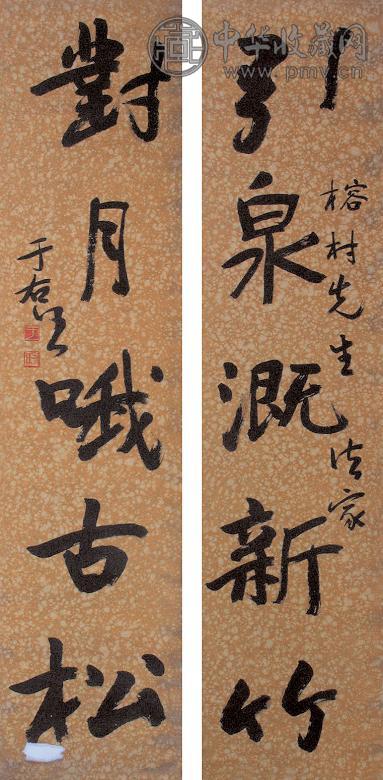 引泉溉新竹
榕村先生法家
對月哦古松
于右任
中华收藏网
www.pmv.cn